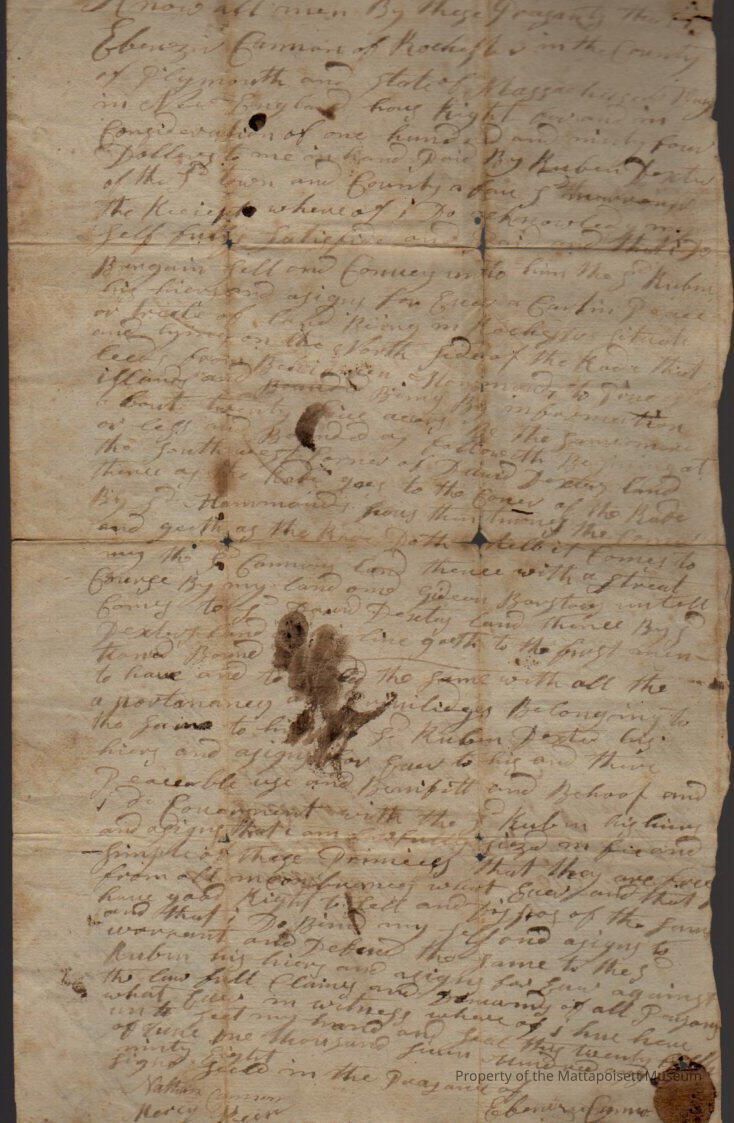 Know all men By these Prasants that
Ebenezer Cannon of Rochester in the County
of Plymouth and State of Massachusets Bay
in New England have Right and in
Consideration of one hundred and ninty four
Dollars to me in hand Paid By Ruben Dexter
of the Sd town and County afore Sd
the Receipt whereof I Do acknowledg my
Self fully Satisfied and Paid and that I Do
Bargain Sell and Convey unto him the Sd Ruben
his hiers and asigns for Ever a Cartin Peace
or of Land Lieing in Rochester
and lying on the North Side of the Rode that
leeds from Hammonds to
Island and Bounds Being By information
about twenty five acres Be the Same more
or less and Bounded as followeth Begining at
the South west Corner of David Dexters land
thence as the Rode goes to the Corner of the Rode
By Sd Hammonds hous then the Corner
and goeth as the Rode Doth untell it Comes to
my the Sd Cannons land thence with a Streat
Course By my land and Gideon Barstows untell
Comes to Sd David Dexters land thence By Sd
Dexters land line goeth to the first men
tiond Bound
to have and to the Same with all the
aportanancys priviliges Belonging to
the Same to him Sd Ruben Dexter his
hiers and asigns for Ever to his and thire
Peaceable use and Benifitt and Behoof and
I do Couenant with the Sd Ruben his hiers
and asigns that I am Seized in fee and
Simple of these Primeses that they are free
from all incombrances what Ever and that I
have good Right to Sell and Dispose of the Same
and that I Do Bind my Self and asigns to
warrant and Defend the Same to the Sd
Ruben his hiers and asigns for Ever against
the law full Claims and Demands of all Parsons
what Ever in witness where of I have here
unto Set my hand and Seal this twenty
of June one thousand Seven hundred
ninty Eight
Signd Seald in the Prasand of
Nathan Cannon
Mercy
Ebenezer Cannon
Property of the Mattapoisett Museum